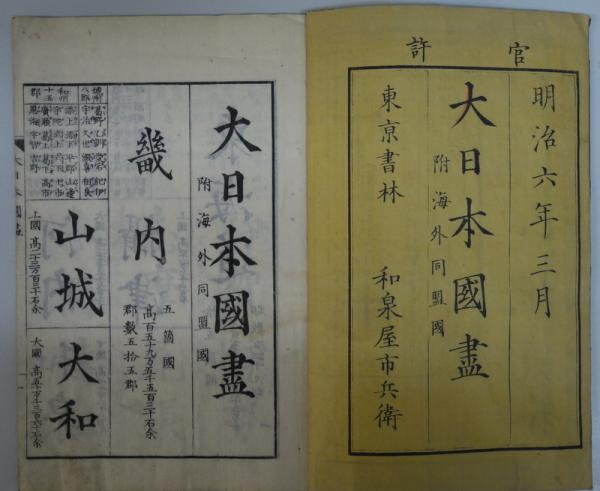 官許
明治六年三月
大日本國盡
附海外同盟國
東京書林　和泉屋市兵衛
大日本國盡
附海外同盟國
畿内
五箇國
高百五十九万五千五百三十石余
郡數五拾五郡
山城
上國　高二十三万百三十石余
大和
大國
大日本國盡